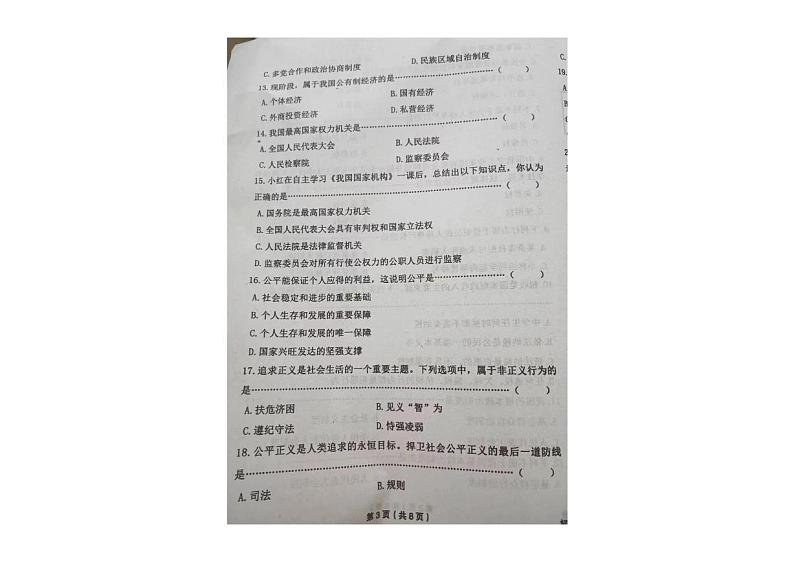 C. 多党合作和政治协商制度 D. 民族区域自治制度
13. 现阶段，属于我国公有制经济的是……………………（ ）
A. 个体经济 B. 国有经济
C. 外商投资经济 D. 私营经济
14. 我国最高国家权力机关是……………………………（ ）
A. 全国人民代表大会 B. 人民法院
C. 人民检察院 D. 监察委员会
15. 小红在自主学习《我国国家机构》一课后，总结出以下知识点，你认为
正确的是……………………………………………………（ ）
A. 国务院是最高国家权力机关
B. 全国人民代表大会具有审判权和国家立法权
C. 人民法院是法律监督机关
D. 监察委员会对所有行使公权力的公职人员进行监察
16. 公平能保证个人应得的利益，这说明公平是……………（ ）
A. 社会稳定和进步的重要基础
B. 个人生存和发展的重要保障
C. 个人生存和发展的唯一保障
D. 国家兴旺发达的坚强支撑
17. 追求正义是社会生活的一个重要主题。下列选项中，属于非正义行为的
是……………………………………………………………（ ）
A. 扶危济困 B. 见义“智”为
C. 遵纪守法 D. 恃强凌弱
18. 公平正义是人类追求的永恒目标。捍卫社会公平正义的最后一道防线
是……………………………………………………………（ ）
A. 司法 B. 规则
第 3 页（共 6 页）
C.
19.